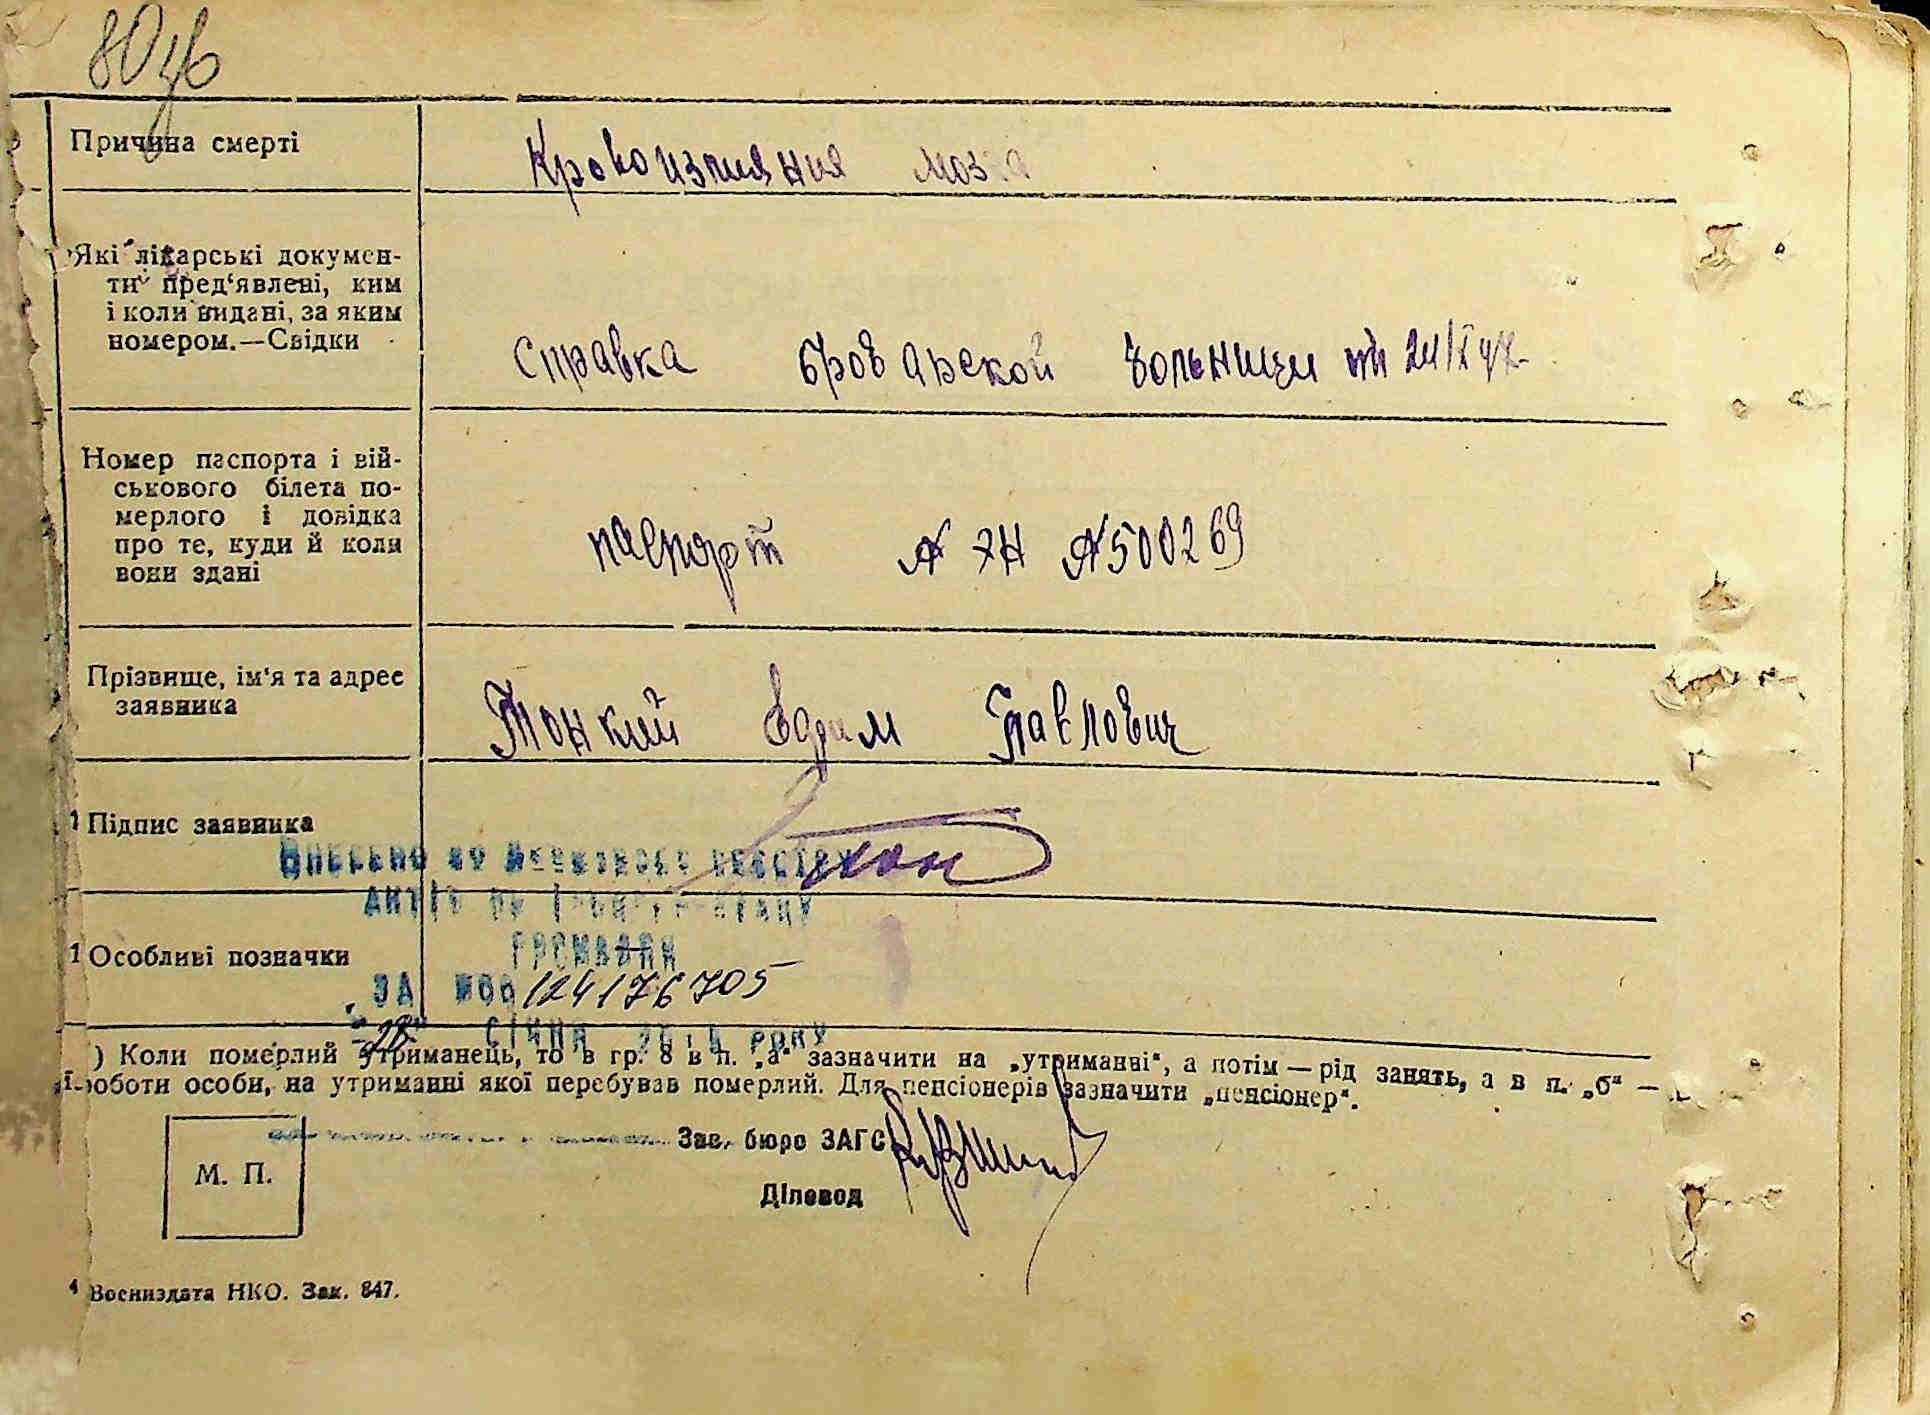 Причина смерті
Кровоизлияния мозга
Які лікарські докумен-
ти пред'явлені, ким
і коли видані, за яким
номером.—Свідки
Справка Броварской больницы
Номер паспорта і вій-
ськового білета по-
мерлого і довідка
про те, куди й коли
вони здані
паспорт № ЯН №500269
Прізвище, ім'я та адрес
заявника
Тонкий Ефим Павлович
1 Підпис заявника
Тон
Внесено до Державного реєстру
актів цивільного стану
громадян
1 Особливі позначки
ЗА №00124176705
"28" січня року
) Коли померлий утриманець, то в гр. 8 в п. „а“ зазначити на „утриманні“, а потім — рід занять, а в п. „б“ —
роботи особи, на утриманні якої перебував померлий. Для пенсіонерів зазначити „пенсіонер“.
М. П.
Зав. бюро ЗАГС
Діловод
4 Воениздата НКО. Зак. 847.